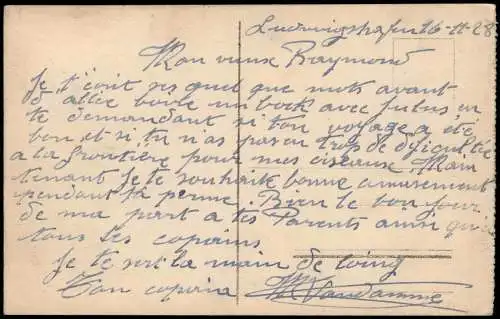 Ludwigshafen 16-11-28
Mon vieux Raymond
Je t'écrit ses quel que mots avant
d allée boire un bock avec Julus en
te demandant si ton voyage a été
bon et si tu n'as pas eu trop de dificultée
a la frontière pour mes ciseaux. Main
tenant Je te souhaite bonne amusement
pendant ta perme. Bien le bon jour
de ma part a tes Parents ainsi qu'a
tous les copains
Je te sert la main de loing
Ton copain
Vandamme